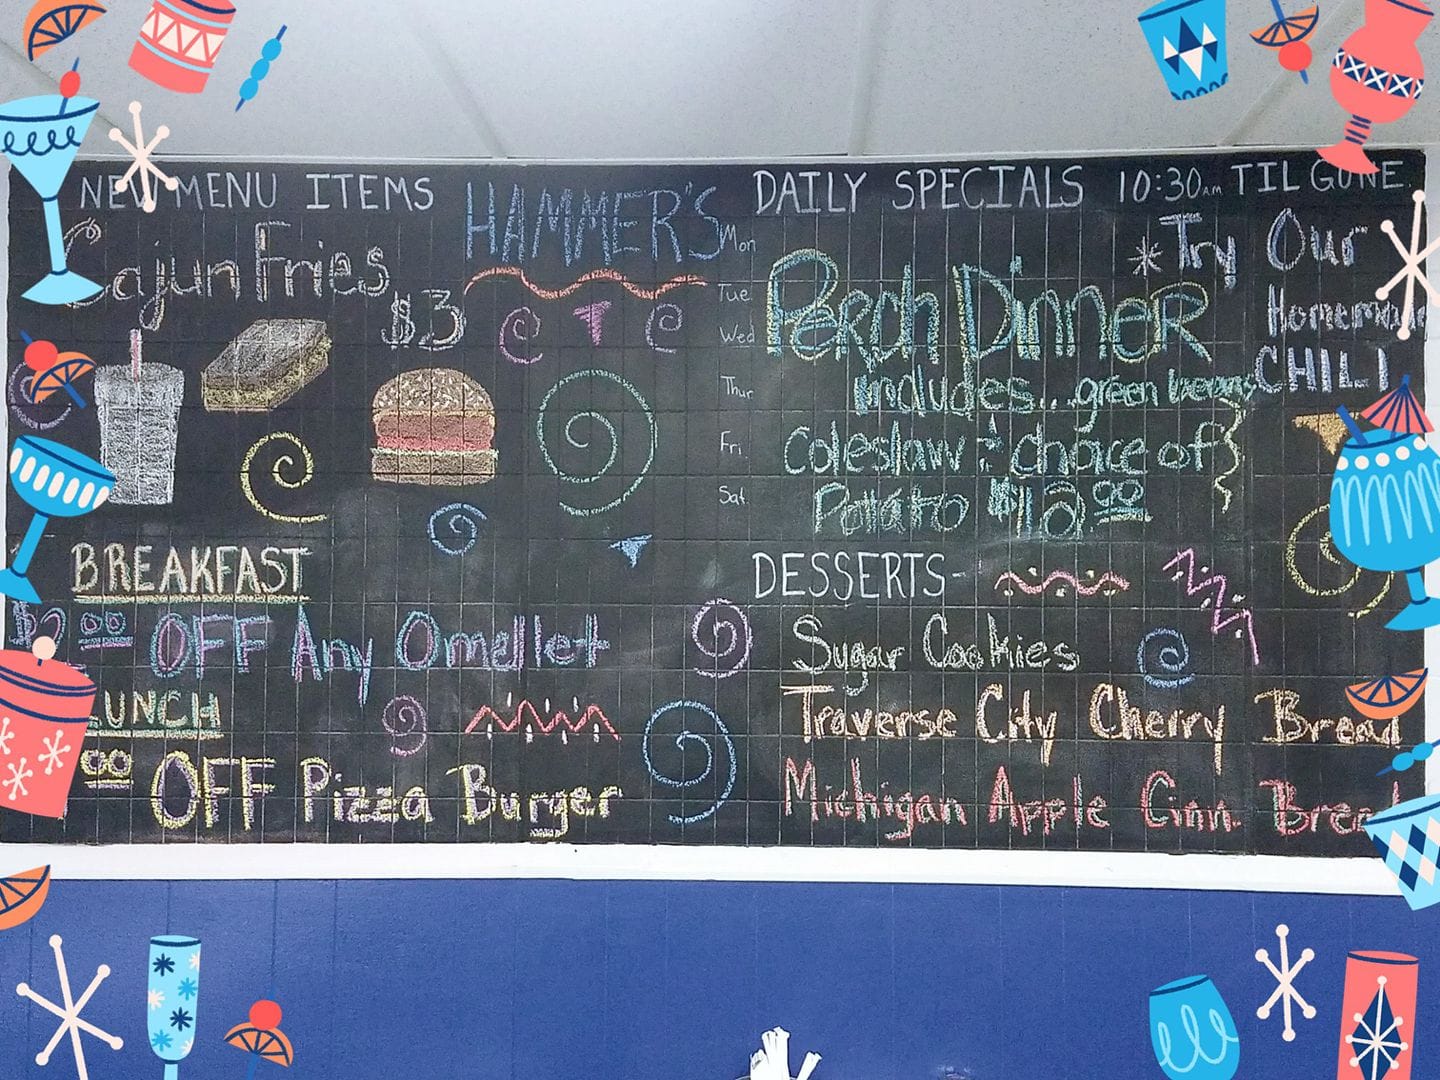 NEW MENU ITEMS
Cajun Fries
$3
HAMMER'S
DAILY SPECIALS 10:30AM TIL GONE
Mon
Tue
Wed
Thur
Fri.
Sat.
Perch Dinner
includes...green beans
Coleslaw & choice of
Potato $12.00
*Try Our
Homemade
CHILI
BREAKFAST
$2.00 OFF Any Omellet
LUNCH
.00 OFF Pizza Burger
DESSERTS-
Sugar Cookies
Traverse City Cherry Bread
Michigan Apple Cinn. Bread